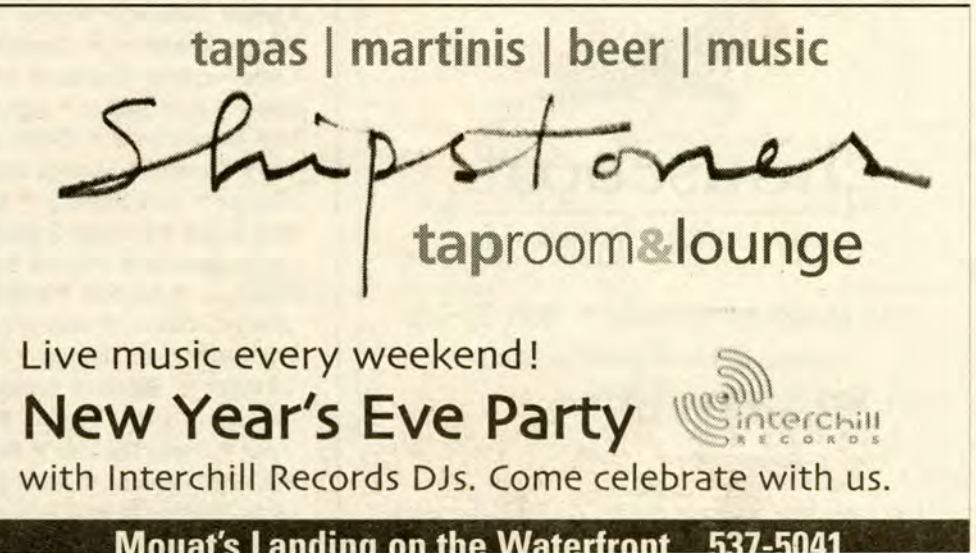 tapas | martinis | beer | music
Shipstones
taproom&lounge
Live music every weekend!
New Year's Eve Party
interchill
RECORDS
with Interchill Records DJs. Come celebrate with us.
Mouat's Landing on the Waterfront 537-5041